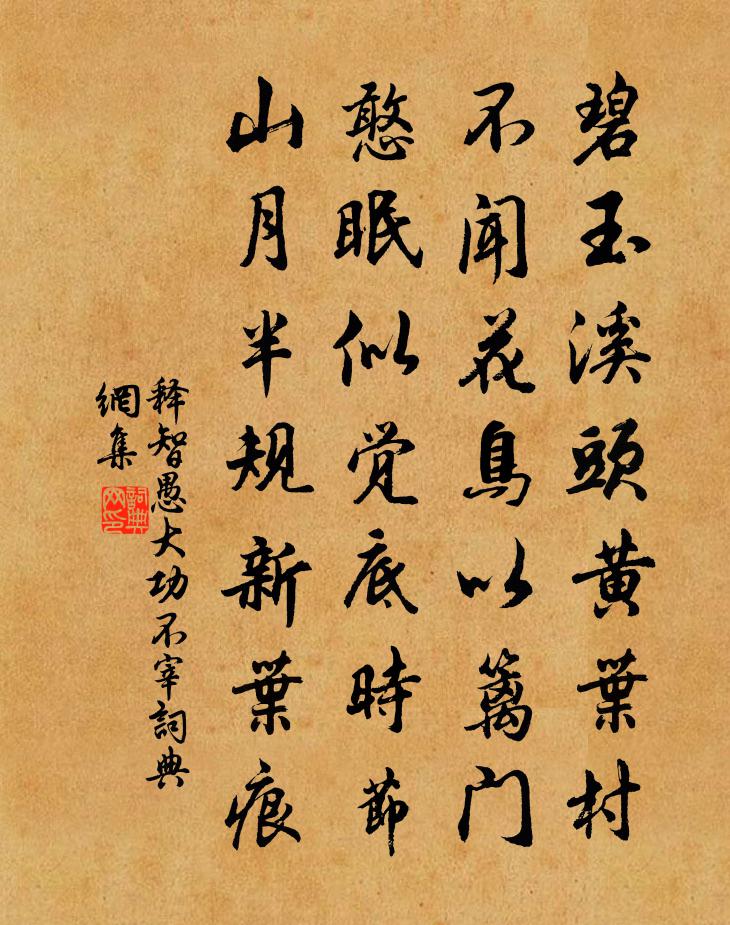 碧玉溪頭黄葉村
不聞花鳥以籬门
憨眠似觉底時節
山月半規新葉痕
释智愚大功不宰詞典
網集
詞典网印